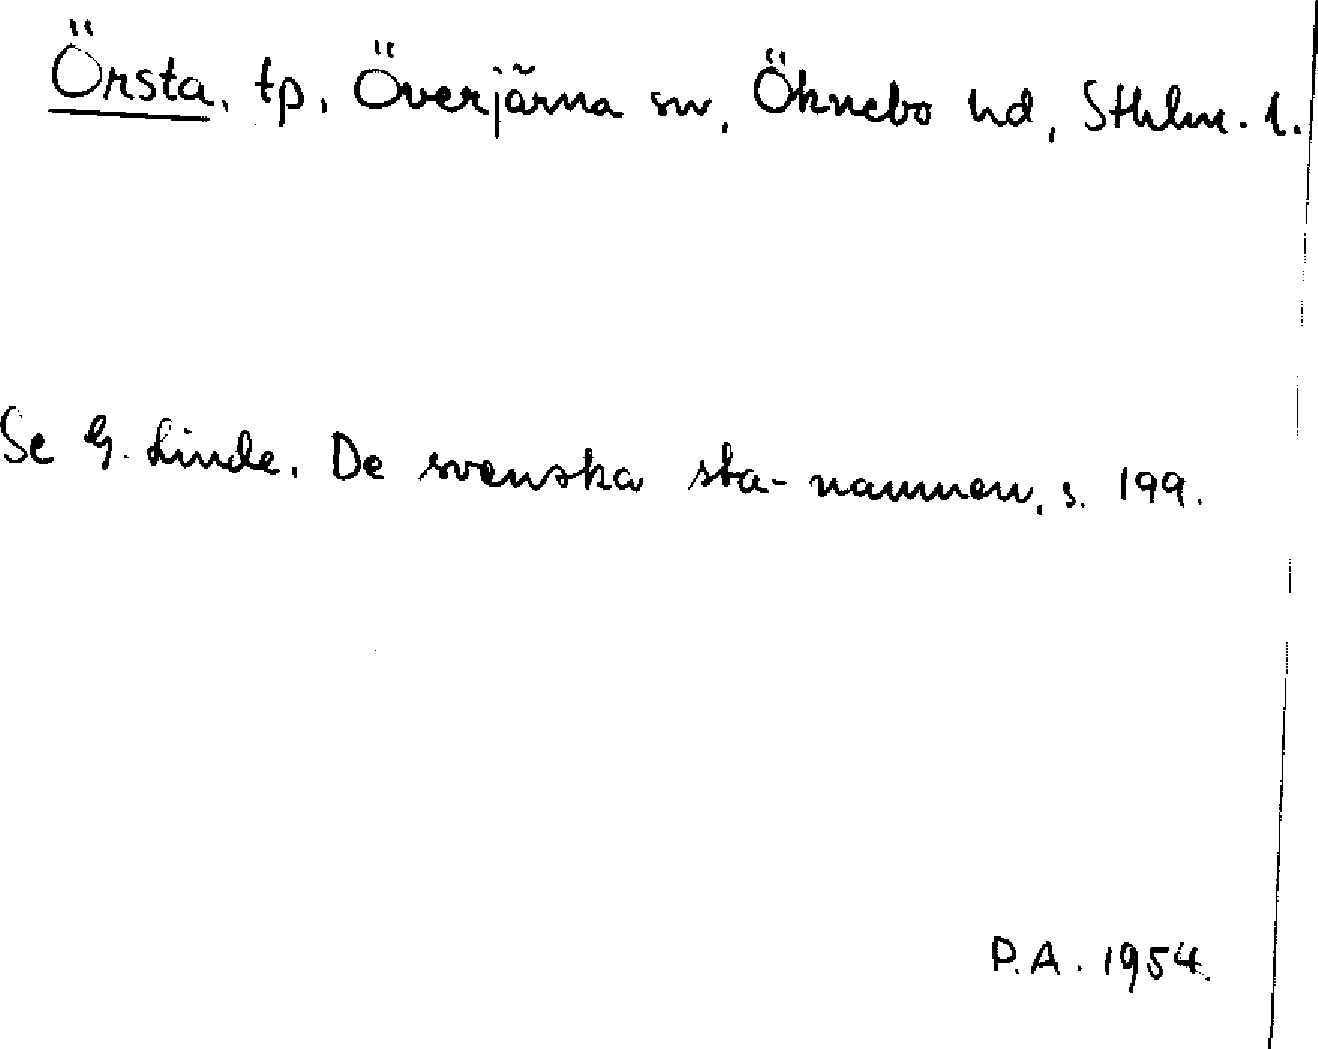 Örsta, tp, Överjärna sn, Öknebo hd, Sthlm. l.
Se G. Linde, De svenska sta-namnen, s. 199.
P.A. 1954.